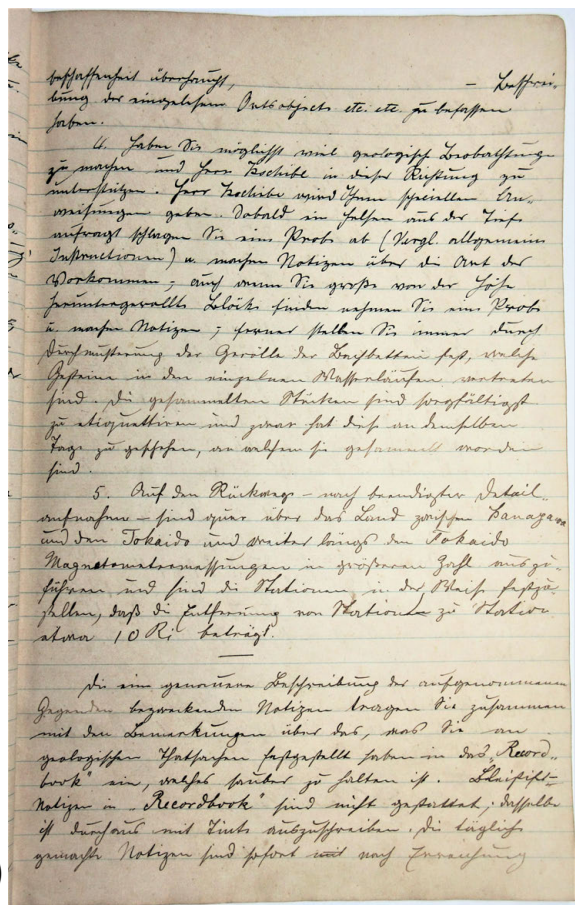 beschaffenheit überhaupt, – Beschrei-
bung der einzelnen Ortsobjects etc. etc. zu befassen
haben.
4. Haben Sie möglichst viel geologische Beobachtungen
zu machen und Herr Kochibe in dieser Richtung zu
unterstützen. Herr Kochibe wird Ihnen speciellen An-
weisungen geben. Sobald ein Felsen aus der Tiefe
aufragt schlagen Sie eine Probe ab (Vergl. allgemeine
Instructionen) u. machen Notizen über die Art des
Vorkommen; auch wenn Sie große von der Höhe
heruntergerollte Blöcke finden nehmen Sie eine Probe
u. machen Notizen; ferner stellen Sie immer durch
Durchmusterung der Gerölle der Bachbetten fest, welche
Gesteine in den einzelnen Wasserläufen vertreten
sind. Die gesammelten Stücken sind sorgfältigst
zu etiquettiren und zwar hat dies an demselben
Tage zu geschehen, an welchem sie gesammelt worden
sind.
5. Auf den Rückwege – nach beendigter Detail-
aufnahmen – sind quer über das Land zwischen Kanazawa
und den Tokaido und weiter längs den Tokaido
Magnetometermessungen in größeren Zahl auszu-
führen, und sind die Stationen in der Weise festzu-
stellen, daß die Entfernung von Station zu Station
etwa 10 Ri beträgt.
Die eine genauere Beschreibung der aufgenommenen
Gegenden bezweckenden Notizen tragen Sie zusammen
mit den Bemerkungen über das, was Sie an
geologischen Thatsachen festgestellt haben in das „Record-
book" ein, welches sauber zu halten ist. Bleistift-
Notizen in „Recordbook" sind nicht gestattet; dasselbe
ist durchaus mit Tinte auszuschreiben. Die täglich
gemachte Notizen sind sofort mit nach Erreichung